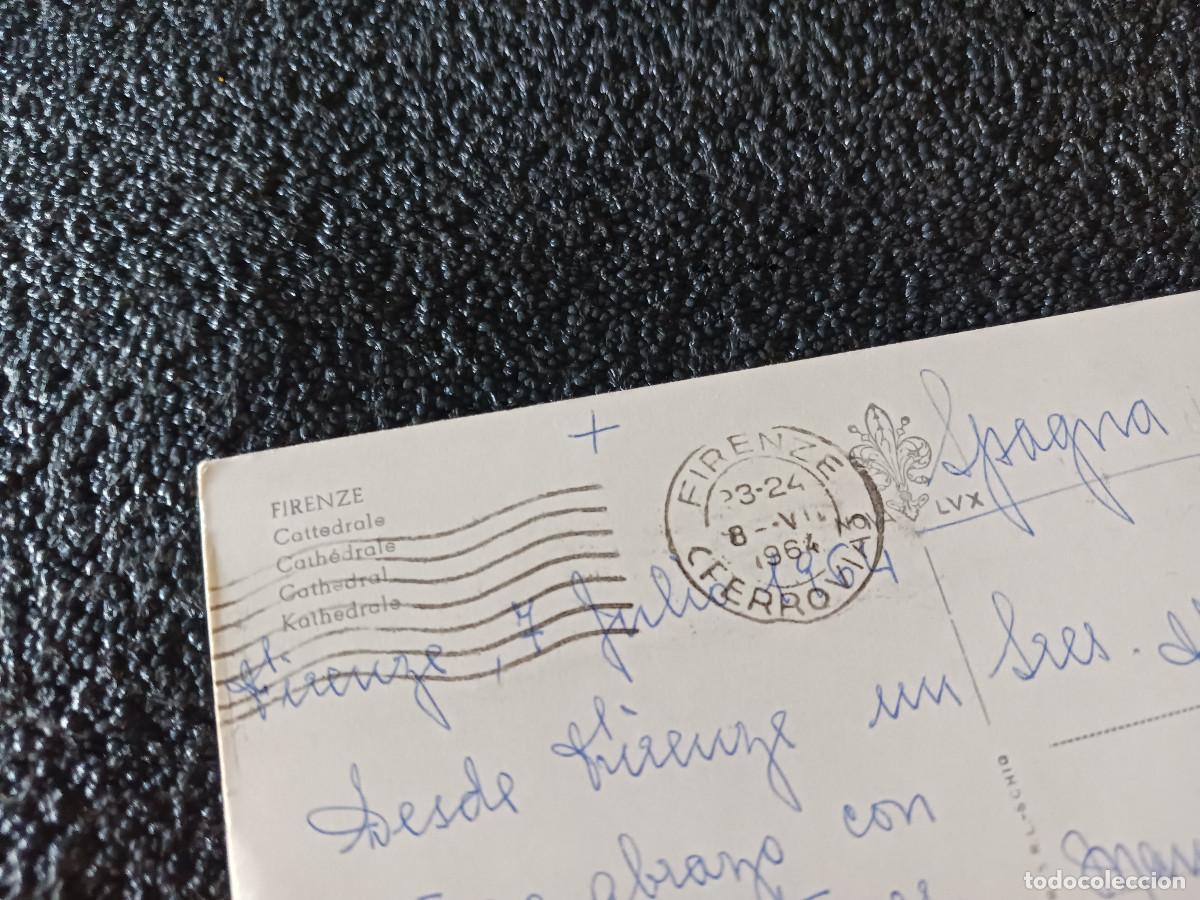 FIRENZE
Cattedrale
Cathédrale
Cathedral
Kathedrale
+
FIRENZE
23-24
8--VII
1964
C FERROVIA
LVX
Spagna
Firenze, 7 Julio 1964
Desde Firenze un
abrazo con
Sres.
todocoleccion